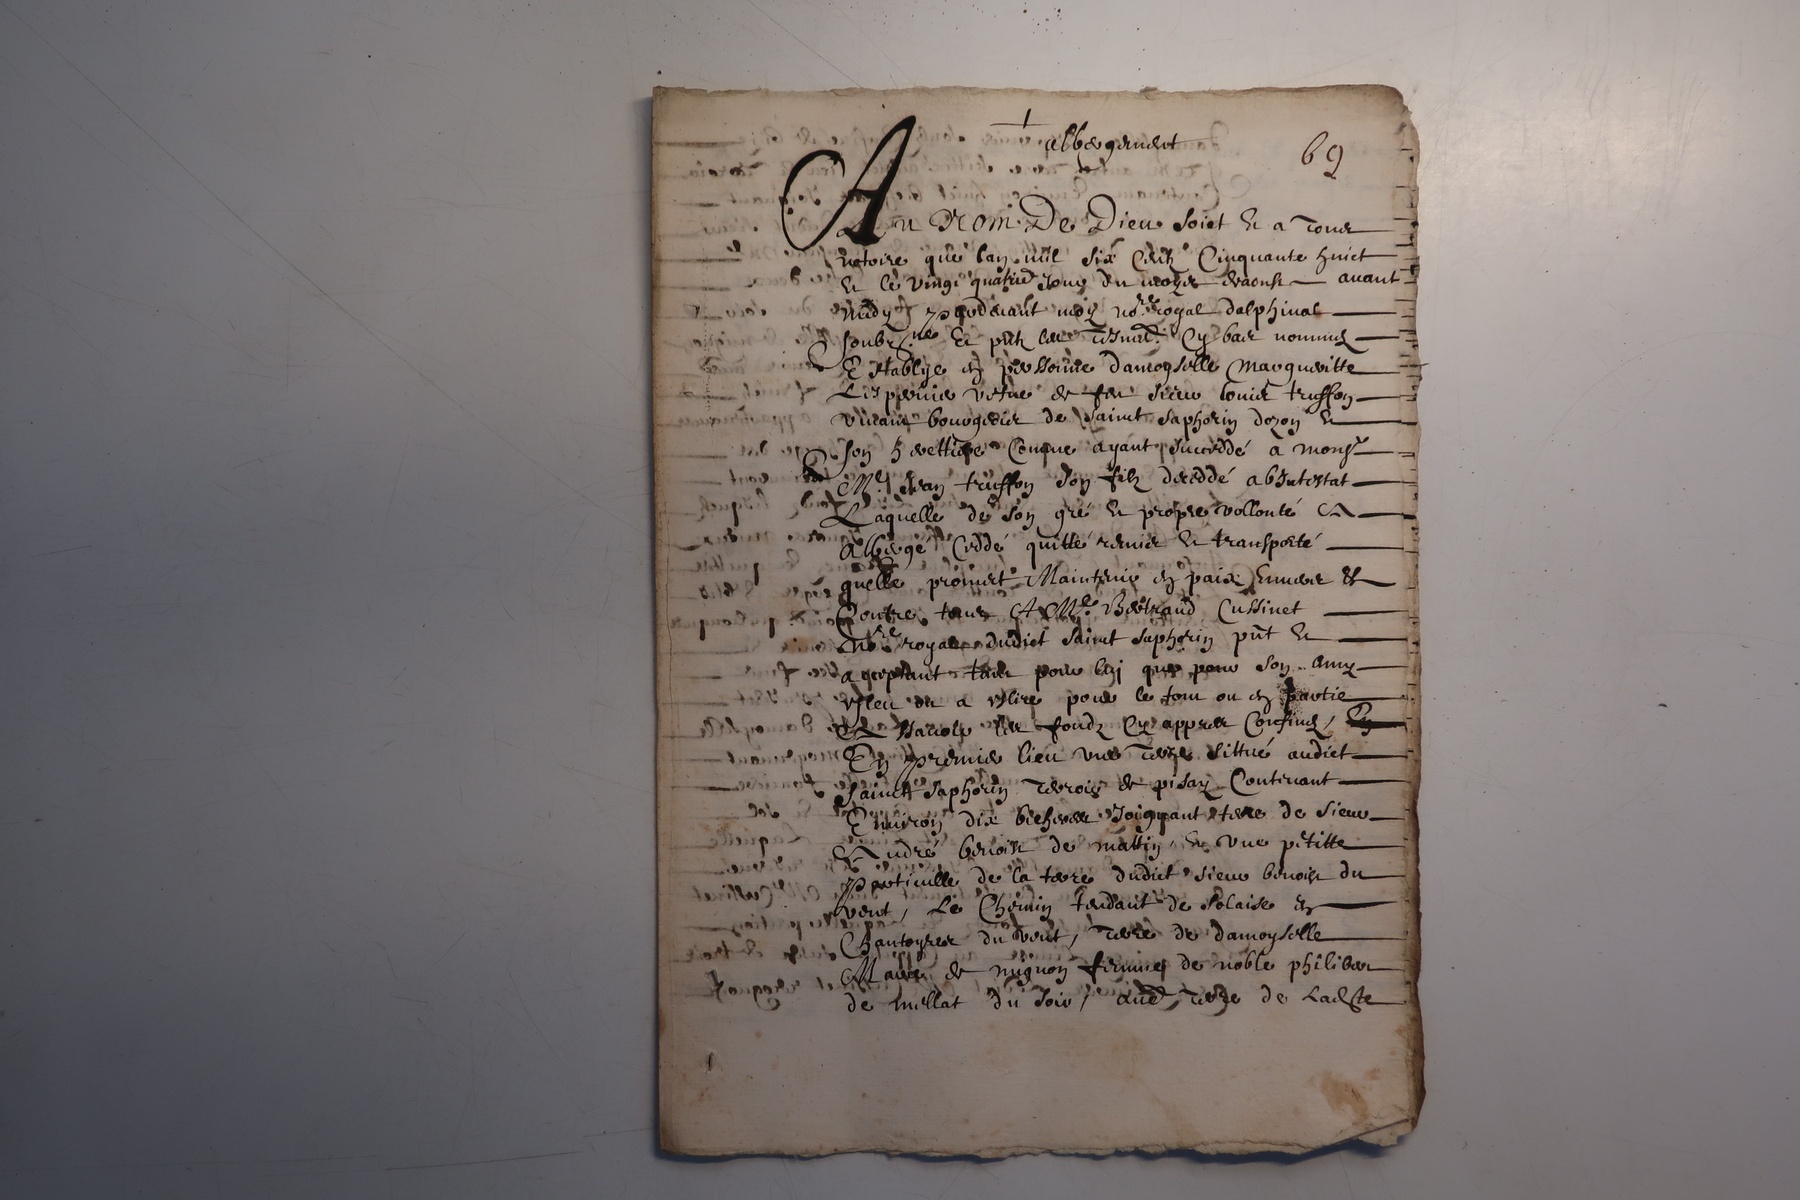 albergement
69
Au Nom De Dieu soict & a tous
notoire que lan mil six centz Cinquante huict
& le vingt quatrie jour du moys daoust avant
midy pardevant moy nore royal dalphinal
soubzne & pntz les tesm cy bas nommes
Establye en personne damoyselle Margueritte
Lespervier vefve de feu sieur louis truffon
vivant bourgeois de sainct saphorin dozon &
son herettiere comme ayant succeddé a monsr
Me Jean truffon son filz deceddé abintestat
Laquelle de son gré & propre vollonté A
albergé ceddé quitté remis & transporté
quelle promect Maintenir en paix envers &
Contre tous A Me Bertrand Cussinet
nore royal dudict sainct saphorin pnt &
acceptant tant pour luy que pour son amy
esleu ou a eslire pour le tout ou en partie
les fondz cy appres confines
En premier lieu une terre sittué audict
sainct saphorin terroir de pisay Contenant
Environ dix bicherees Joignant terre de sieur
André benoist de mattin & une petitte
particulle de la terre dudict sieur benoist du
vent, Le Chemin tendant de solaise &
Chantoyres du vent, terre de damoyselle
Marie de mignon femme de noble philiber
de du soir, terre de Ladite